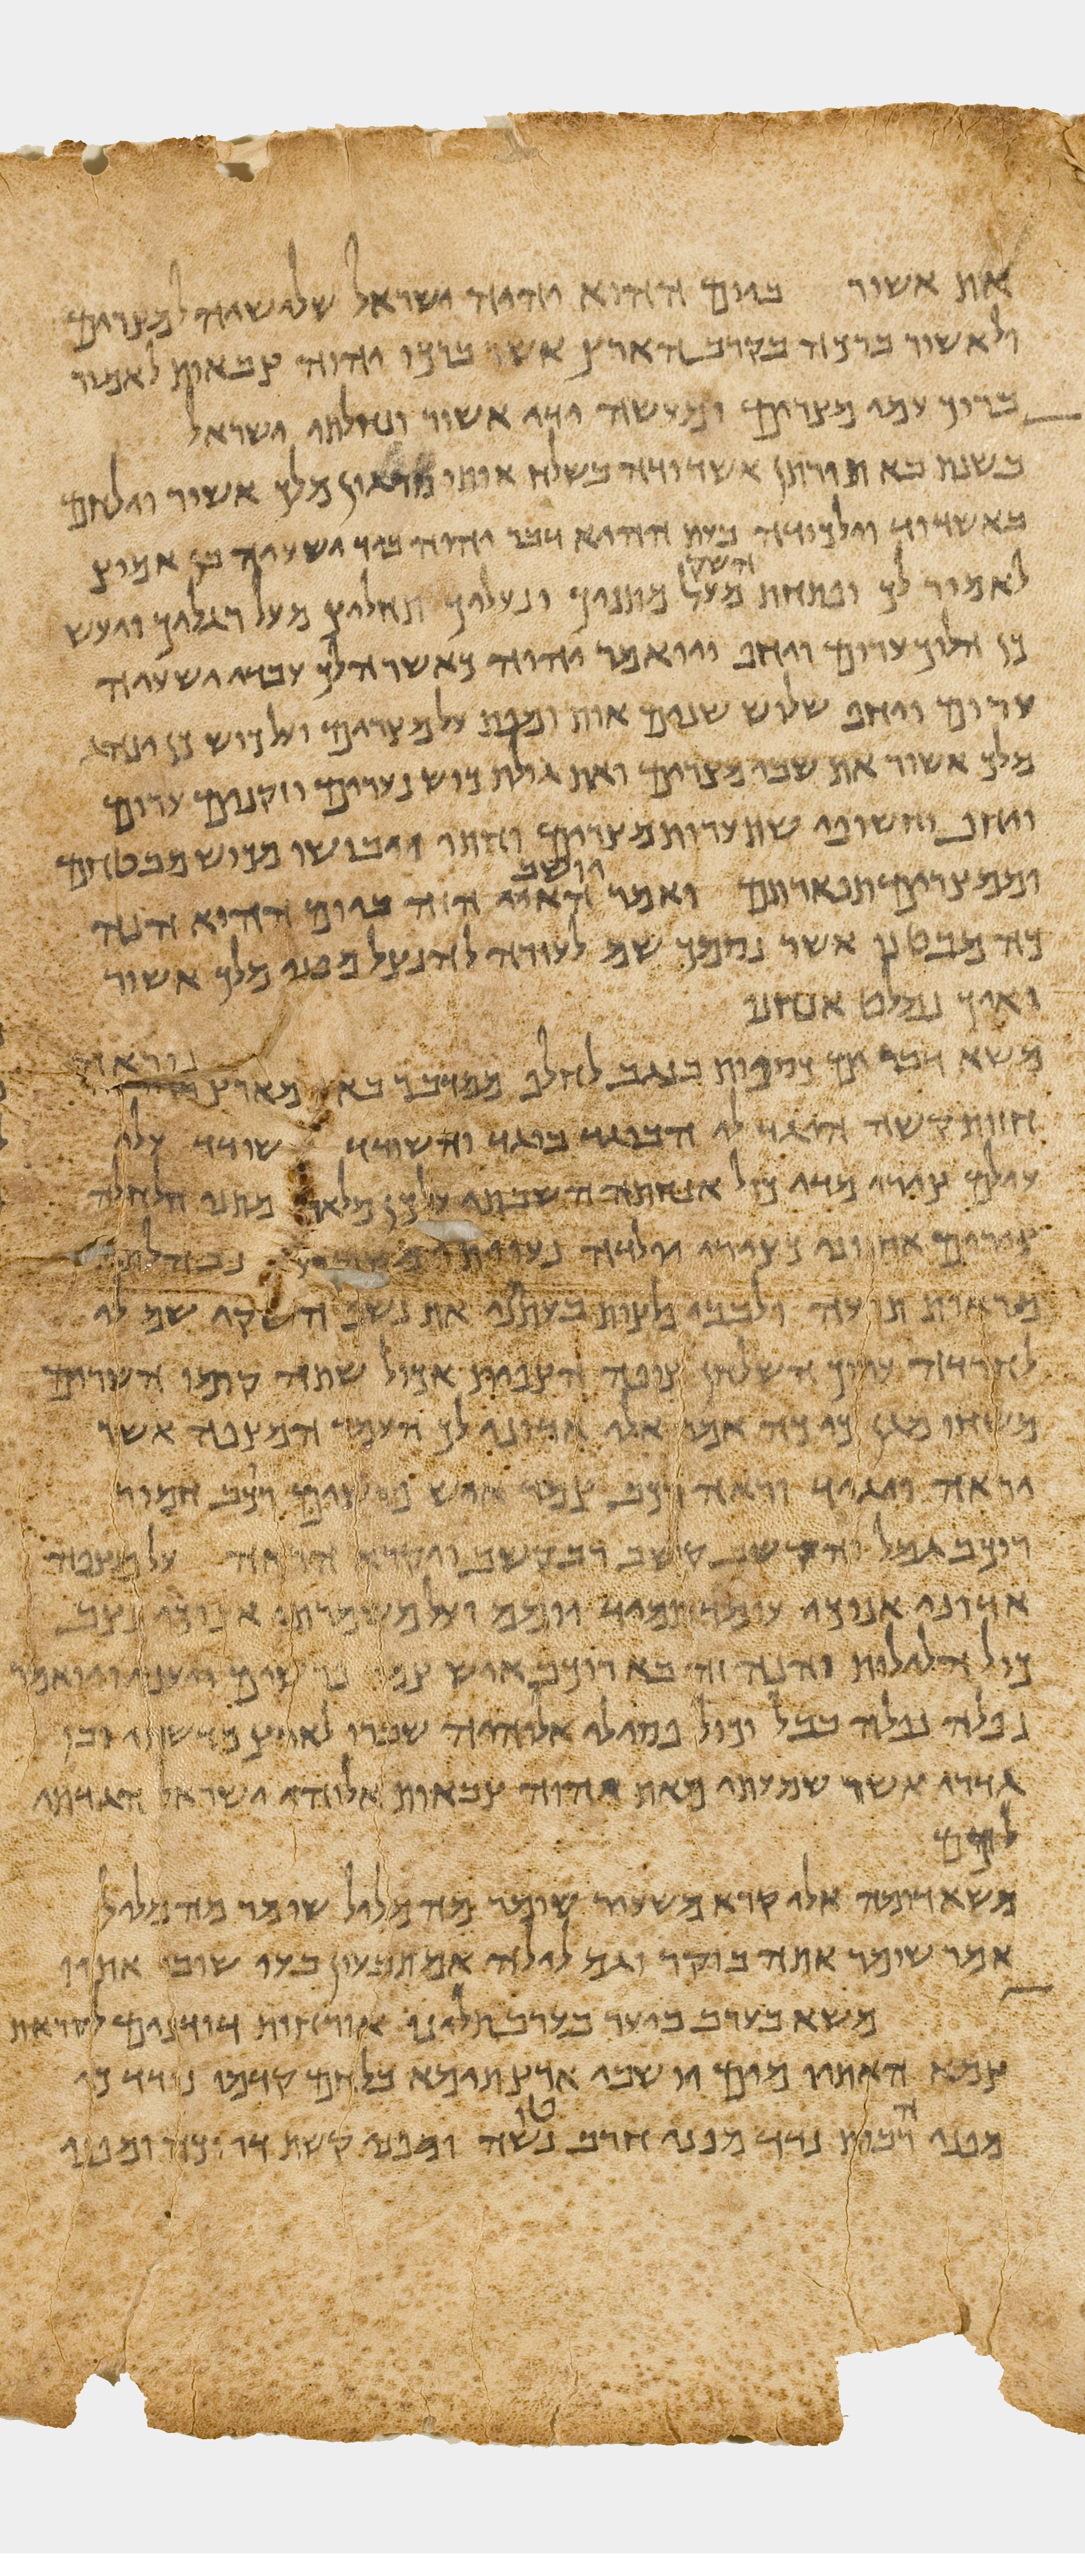 את אשור ביום ההוא יהיה ישראל שלישיה למצרים
ולאשור ברכה בקרב הארץ אשר ברכו יהוה צבאות לאמור
ברוך עמי מצרים ומעשה ידי אשור ונחלתי ישראל
בשנת בא תורתן אשדודה בשלח אותו סרגון מלך אשור וילחם
באשדוד וילכודה בעת ההיא דבר יהוה ביד ישעיה בן אמוץ
לאמור לך ופתחת השק מעל מתניך ונעליך תחלוץ מעל רגליך ויעש
כן הלוך ערום ויחף ויואמר יהוה כאשר הלך עבדי ישעיה
ערום ויחף שלוש שנים אות ומפת על מצרים ועל כוש כן ינהג
מלך אשור את שבי מצרים ואת גולת כוש נערים וזקנים ערום
ויחף וחשופי שת ערות מצרים וחתו ויבושו מכוש מבטחם
וממצרים תפארתם ואמר יושב האי הזה ביום ההוא הנה
כה מבטנו אשר נסמך שם לעזרה להנצל מפני מלך אשור
ואיך נמלט אנחנו
משא דבר ים כסופות בנגב לחלף ממדבר בא מארץ נוראה
חזות קשה הוגד לי הבוגד בוגד והשודד שודד עלי
עילם צורי מדי כול אנחתה השבתי על כן מלאו מתני חלחלה
צירים אחזוני כצירי יולדה נעויתי נבהלתי
תועה ולבבי פלצות בעתתני את נשף שם לי
לחרדה ערוך השלחן צופה הצפית אכול שתה קומו השרים
משחו מגן כי כה אמר אלי אדוני לך העמד המצפה אשר
יראה ויגיד וראה רכב צמד איש פרשים רוכב חמור
רוכב גמל והקשיב קשב רב קשב ויקרא הראה על מצפה
אדוני אנוכי עומד תמיד יומם ועל משמרתי אנוכי נצב
כול הלילות והנה זה בא רוכב איש צמד פרשים ויען ויואמר
נפלה נפלה בבל וכול פסילי אלוהיה שברו לארץ מדשתי ובן
גדרי אשר שמעתי מאת יהוה צבאות אלוהי ישראל הגדתי
לכם
משא דומה אלי קרא משעיר שומר מה מליל שומר מה מליל
אמר שומר אתה בוקר וגם לילה אם תבעון בעו שובו אתיו
משא בערב ביער בערב תלינו אורחות דודנים לקראת
צמא האתיו מים יושבי ארץ תימא בלחם קדמו נודד כי
מפני רבות נדד מפני חרב נטושה ומפני קשת דרוכה ומפני